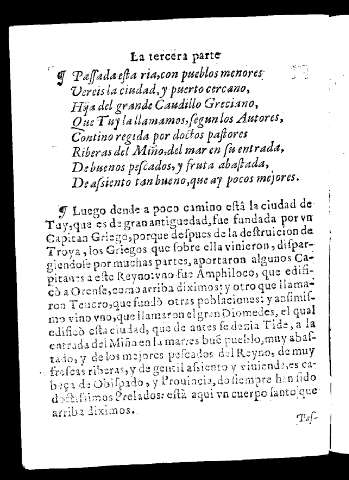 La tercera parte
¶ Passada esta ria, con pueblos menores
Vereis la ciudad, y puerto cercano,
Hija del grande Caudillo Greciano,
Que Tuy la llamamos, segun los Autores,
Contino regida por doctos pastores
Riberas del Miño, del mar en su entrada,
De buenos pescados, y fruta abastada,
De assiento tan bueno, que ay pocos mejores.
¶ Luego dende a poco camino está la ciudad de
Tuy, que es de gran antiguedad, fue fundada por vn
Capitan Griego, porque despues de la destruicion de
Troya, los Griegos que sobre ella vinieron, dispar-
giendose por muchas partes, aportaron algunos Ca-
pitanes a este Reyno: vno fue Amphiloco, que edifi-
cò a Orense, como arriba diximos: y otro que llama-
ron Teucro, que fundó otras poblaciones: y assimis-
mo vino vno, que llamaron el gran Diomedes, el qual
edificò esta ciudad, que de antes se dezia Tide, a la
entrada del Miño en la mar: es buē pueblo, muy abas-
tado, y de los mejores pescados del Reyno, de muy
frescas riberas, y de gentil assiento y viuiendas: es ca-
beça de Obispado, y Prouincia, do siempre han sido
doctissimos Prelados: está aqui vn cuerpo santo que
arriba diximos.
Pas-